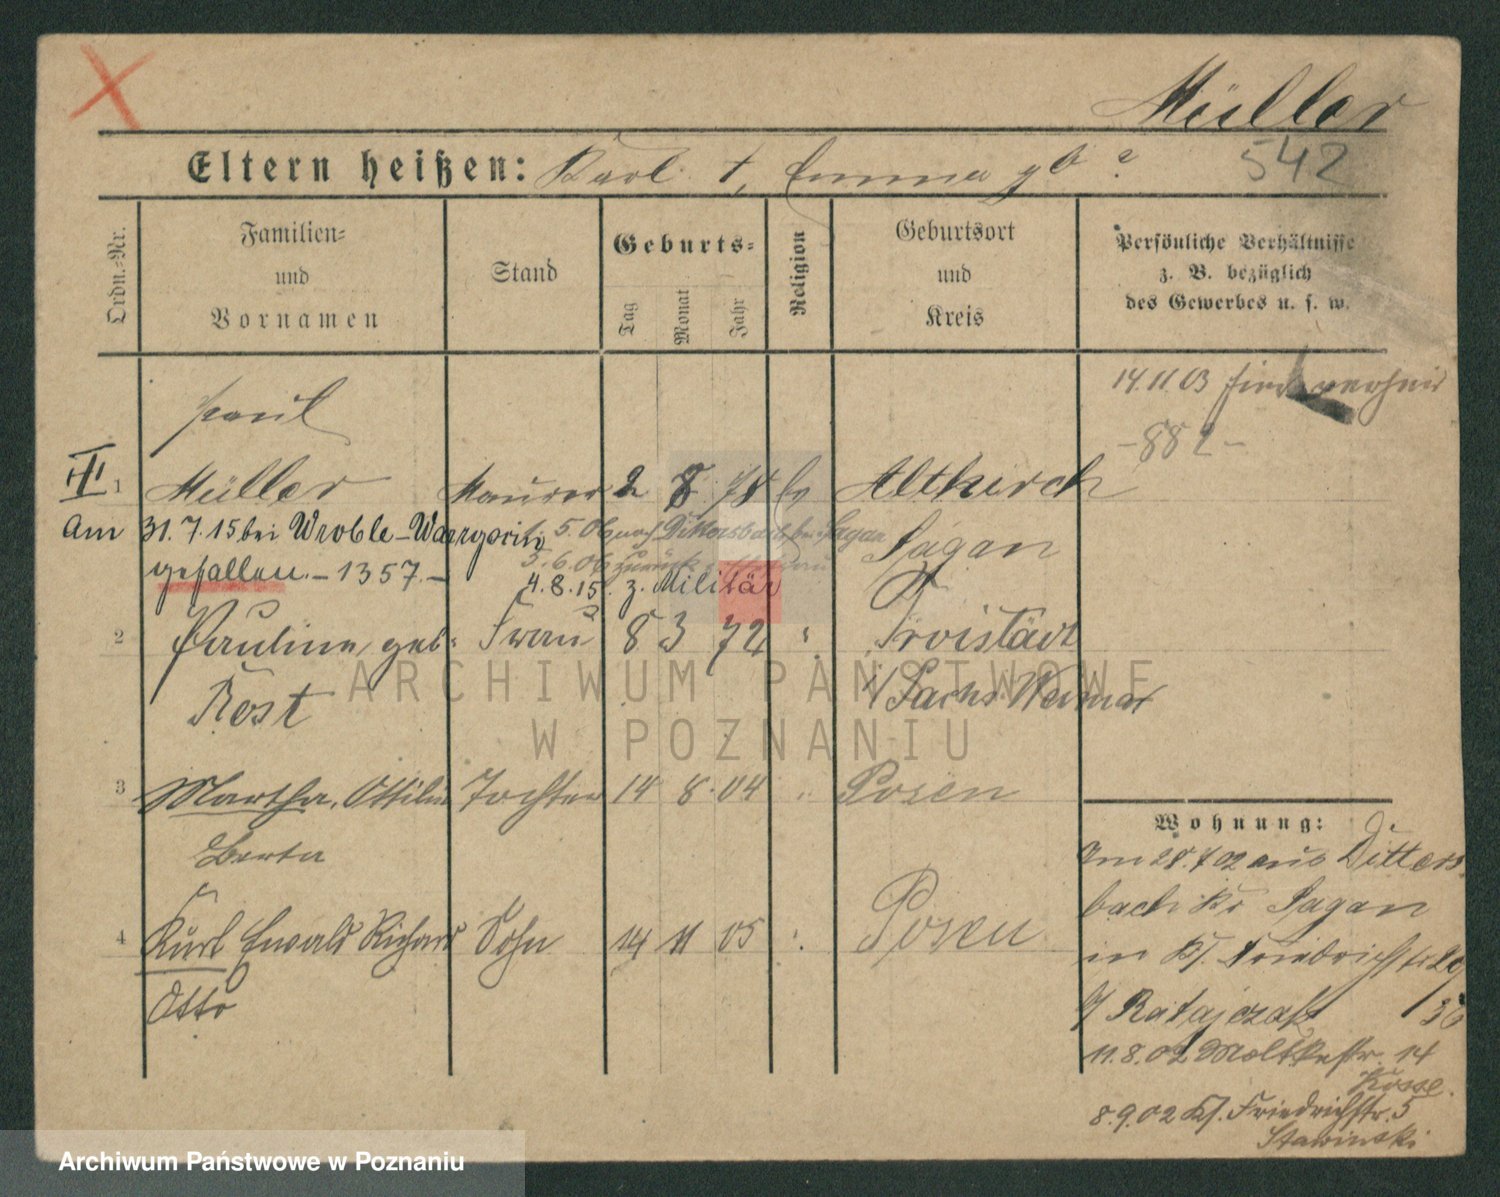 Müller
Eltern heißen: Karl †, Emma gb ?
542
Ordn.-Nr.
Familien- und Vornamen
Stand
Geburts-
Tag
Monat
Jahr
Religion
Geburtsort und Kreis
Persönliche Verhältnisse
z. B. bezüglich
des Gewerbes u. s. w.
14.11.03
-882-
Paul
III
1 Müller Maurer 2 8 78 ev Altkirch
Am 31.7.15 bei Wroble-
5.06 nach Dittersbach, Kr. Sagan
Sagan
gefallen. - 1357. -
5.6.06 zurück
4.8.15. z. Militär
2 Pauline, geb. Frau 8 3 72 "
Rost
i/ Sachs. Weimar
3 Martha, Ottilie Tochter 14 8. 04 " Posen
Berta
4 Kurt Ewald Richard Sohn 14 11 05 " Posen
Otto
Wohnung:
Am 28.7.02 aus Ditters-
bach Kr Sagan
in Kl. Friedrichstr 29
b/ Ratajczak
11.8.02 Moltkestr. 14
8.9.02 Kl. Friedrichstr. 5
Stawinski
ARCHIWUM PAŃSTWOWE
W POZNANIU
Archiwum Państwowe w Poznaniu